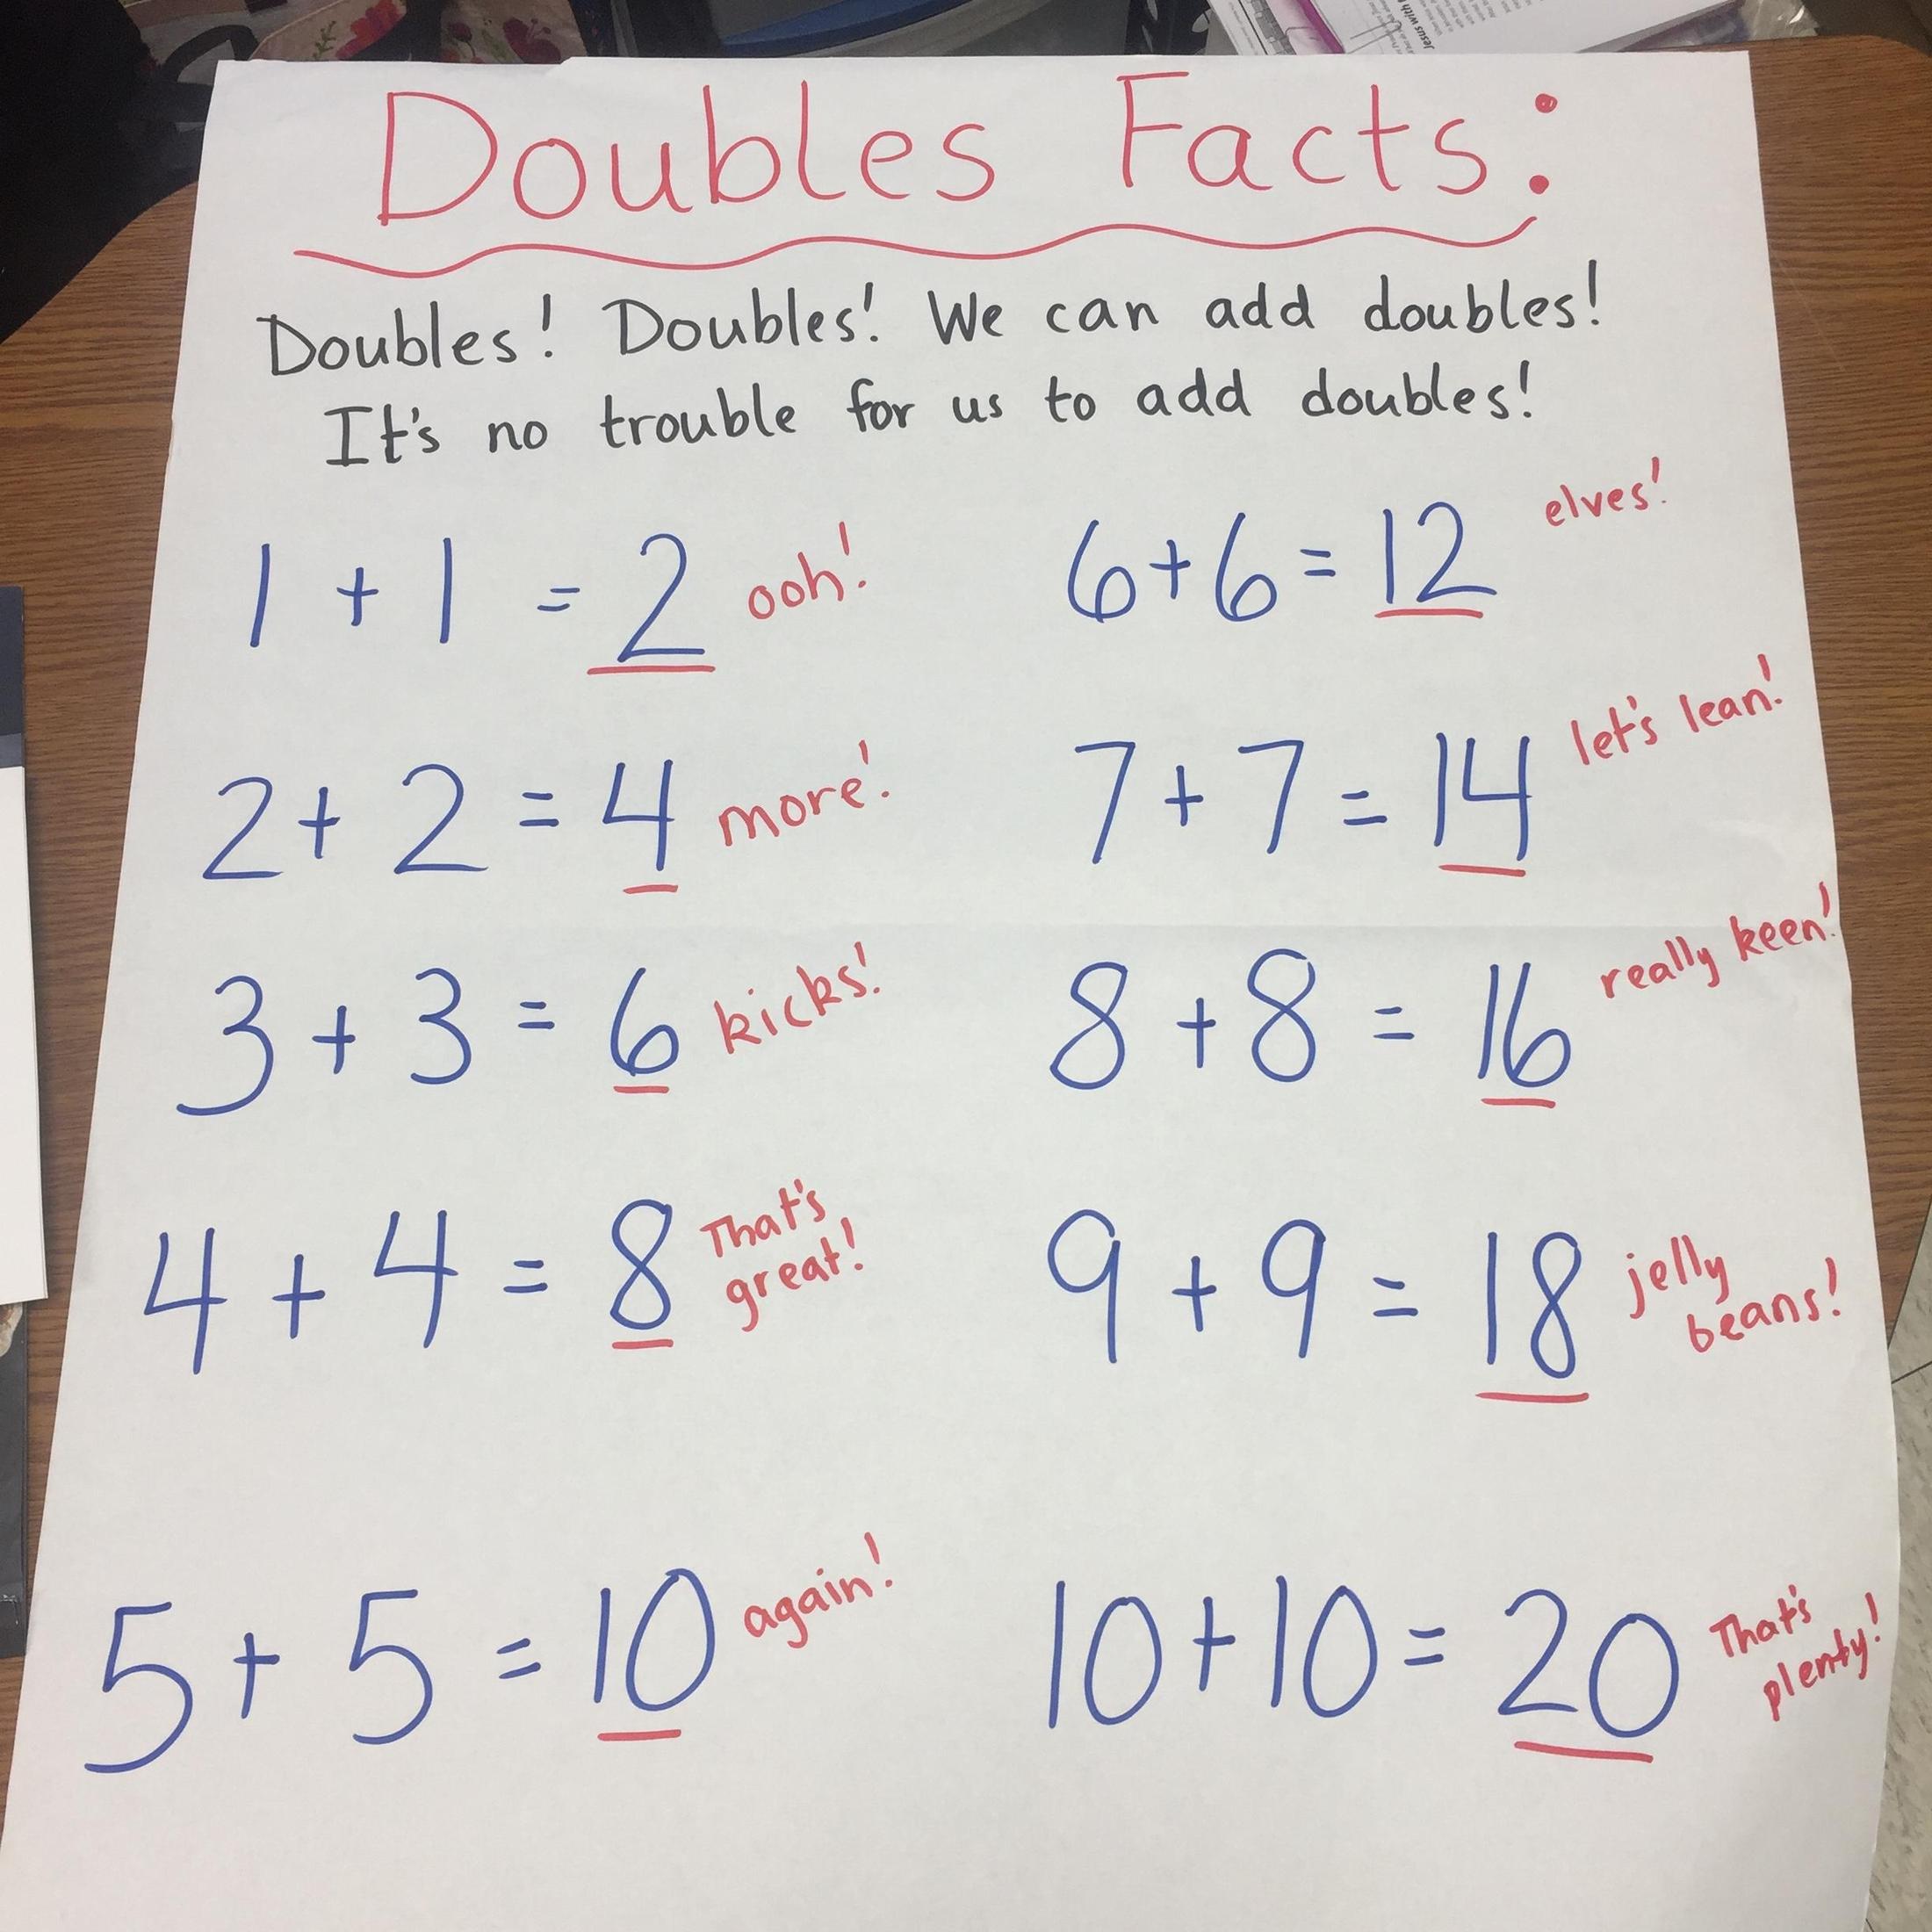 Doubles Facts:
Doubles! Doubles! We can add doubles!
It's no trouble for us to add doubles!
1 + 1 = 2 ooh!
2 + 2 = 4 more!
3 + 3 = 6 kicks!
4 + 4 = 8 That's
great!
5 + 5 = 10 again!
6 + 6 = 12 elves!
7 + 7 = 14 let's lean!
8 + 8 = 16 really keen!
9 + 9 = 18 jelly
beans!
10 + 10 = 20 That's
plenty!
Jesus with